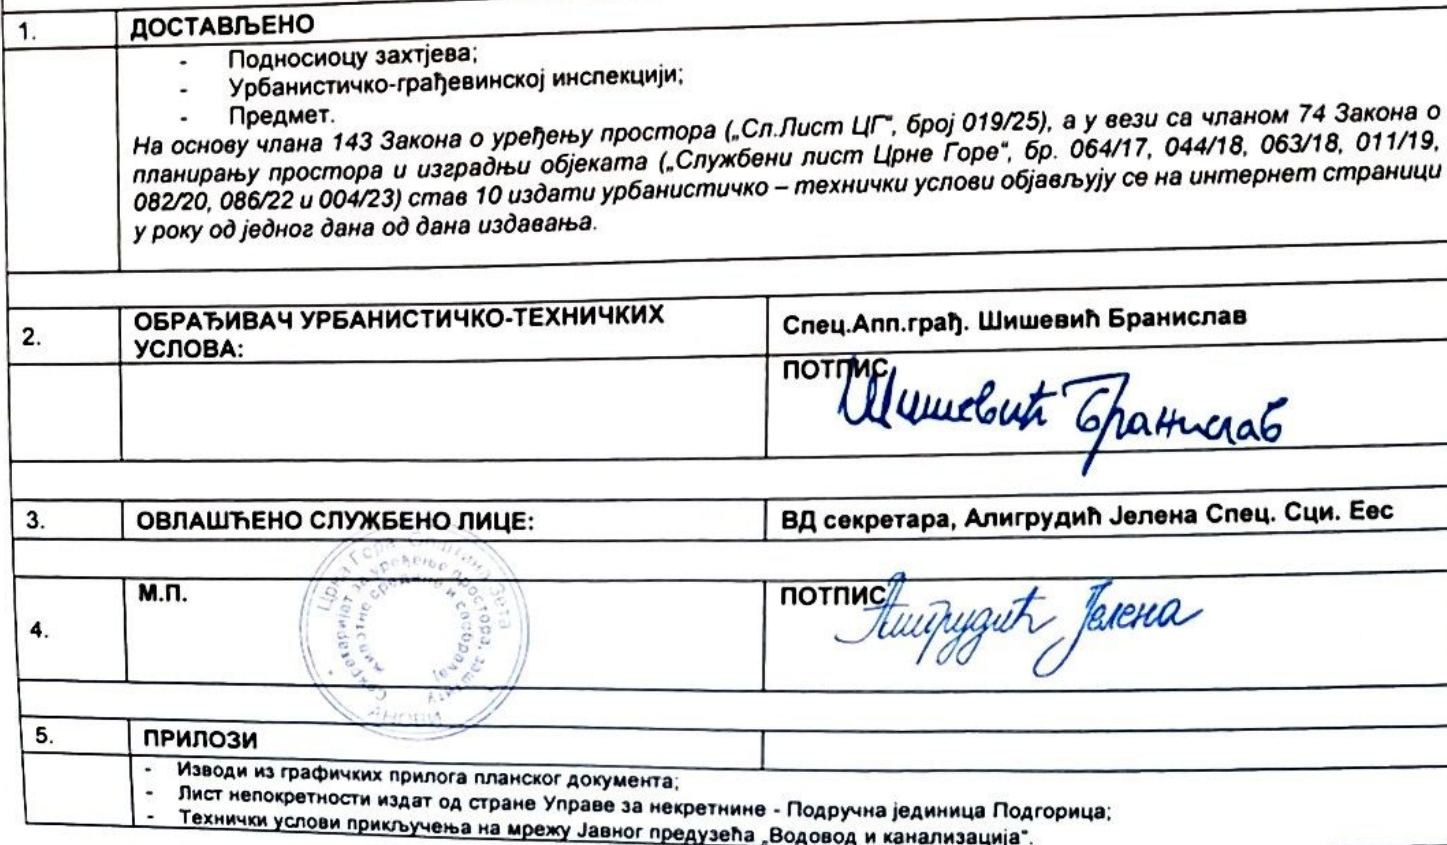 1. ДОСТАВЉЕНО
- Подносиоцу захтјева;
- Урбанистичко-грађевинској инспекцији;
- Предмет.
На основу члана 143 Закона о уређењу простора („Сл.Лист ЦГ“, број 019/25), а у вези са чланом 74 Закона о
планирању простора и изградњи објеката („Службени лист Црне Горе“, бр. 064/17, 044/18, 063/18, 011/19,
082/20, 086/22 и 004/23) став 10 издати урбанистичко – технички услови објављују се на интернет страници
у року од једног дана од дана издавања.
2. ОБРАЂИВАЧ УРБАНИСТИЧКО-ТЕХНИЧКИХ
УСЛОВА:
Спец.Апп.грађ. Шишевић Бранислав
ПОТПИС
Шишевић Бранислав
3. ОВЛАШЋЕНО СЛУЖБЕНО ЛИЦЕ:
ВД секретара, Алигрудић Јелена Спец. Сци. Еес
4. М.П.
Црна Гора Општина Зета
Секретаријат за уређење простора, заштиту
животне средине и саобраћај
ПОТПИС
Алигрудић Јелена
5. ПРИЛОЗИ
- Изводи из графичких прилога планског документа;
- Лист непокретности издат од стране Управе за некретнине - Подручна јединица Подгорица;
- Технички услови прикључења на мрежу Јавног предузећа „Водовод и канализација“.